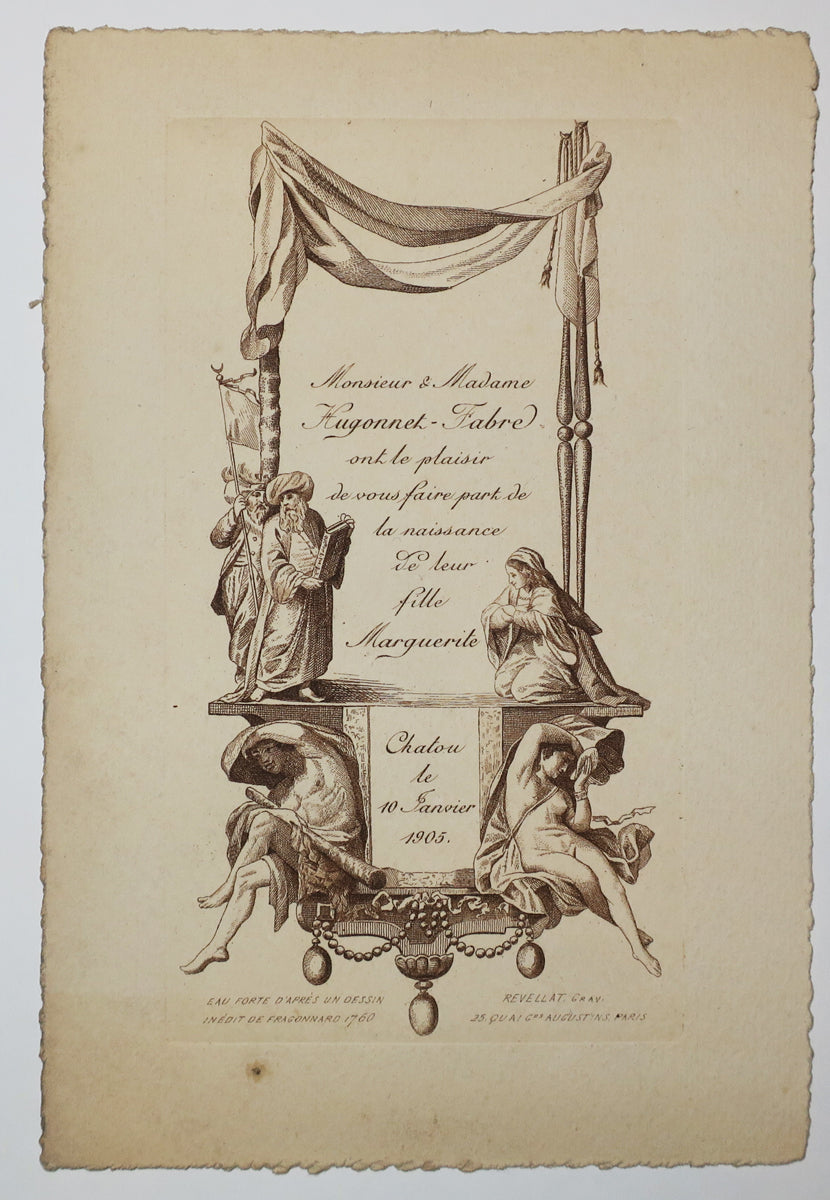 Monsieur & Madame
Hugonnet-Fabre
ont le plaisir
de vous faire part de
la naissance
de leur
fille
Marguerite
Chatou
le
10 Janvier
1905.
EAU FORTE D'APRÈS UN DESSIN
INÉDIT DE FRAGONNARD 1760
REVELLAT, GRAV.
25, QUAI GDS AUGUSTINS, PARIS